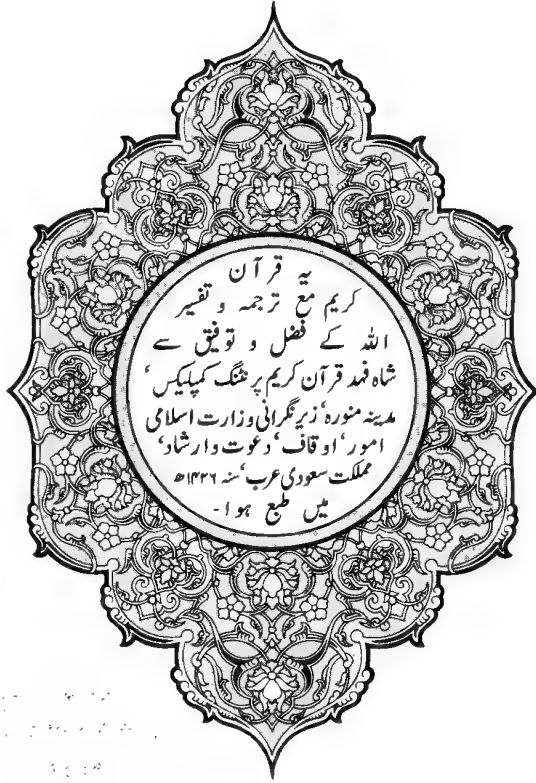 یہ قرآن
کریم مع ترجمہ و تفسیر
اللہ کے فضل و توفیق سے
شاہ فہد قرآن کریم پرنٹنگ کمپلیکس‘
مدینہ منورہ‘ زیر نگرانی وزارت اسلامی
امور‘ اوقاف‘ دعوت وارشاد‘
مملکت سعودی عرب‘ سنہ ۱۴۲۶ھ
میں طبع ہوا۔